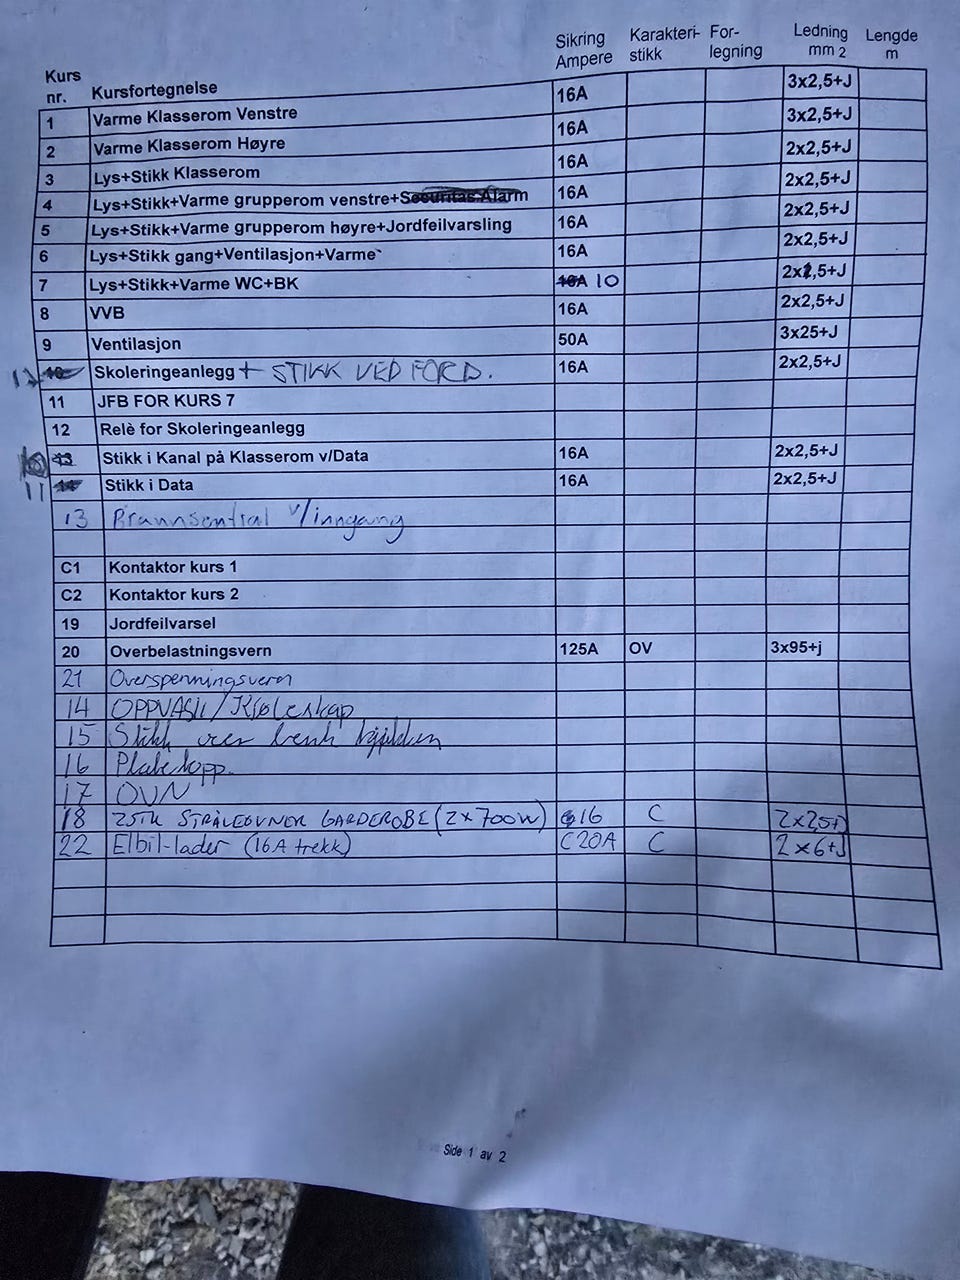 Kurs nr. Kursfortegnelse Sikring Ampere Karakteri-stikk For-legning Ledning mm 2 Lengde m
1 Varme Klasserom Venstre 16A 3x2,5+J
2 Varme Klasserom Høyre 16A 3x2,5+J
3 Lys+Stikk Klasserom 16A 2x2,5+J
4 Lys+Stikk+Varme grupperom venstre+Securitas Alarm 16A 2x2,5+J
5 Lys+Stikk+Varme grupperom høyre+Jordfeilvarsling 16A 2x2,5+J
6 Lys+Stikk gang+Ventilasjon+Varme 16A 2x2,5+J
7 Lys+Stikk+Varme WC+BK 16A 10 2x1,5+J
8 VVB 16A 2x2,5+J
9 Ventilasjon 50A 3x25+J
12 10 Skoleringeanlegg + STIKK VED FORD. 16A 2x2,5+J
11 JFB FOR KURS 7
12 Relè for Skoleringeanlegg
10 13 Stikk i Kanal på Klasserom v/Data 16A 2x2,5+J
11 14 Stikk i Data 16A 2x2,5+J
13 Brannsentral v/inngang
C1 Kontaktor kurs 1
C2 Kontaktor kurs 2
19 Jordfeilvarsel
20 Overbelastningsvern 125A OV 3x95+j
21 Overspenningsvern
14 OPPVASK/Kjøleskap
15 Stikk over benk kjøkken
16 Platetopp.
17 OVN
18 2STK STRÅLEOVNER GARDEROBE (2x700W) 16 C 2x2,5+J
22 Elbil-lader (16A trekk) C20A C 2x6+J
Side 1 av 2